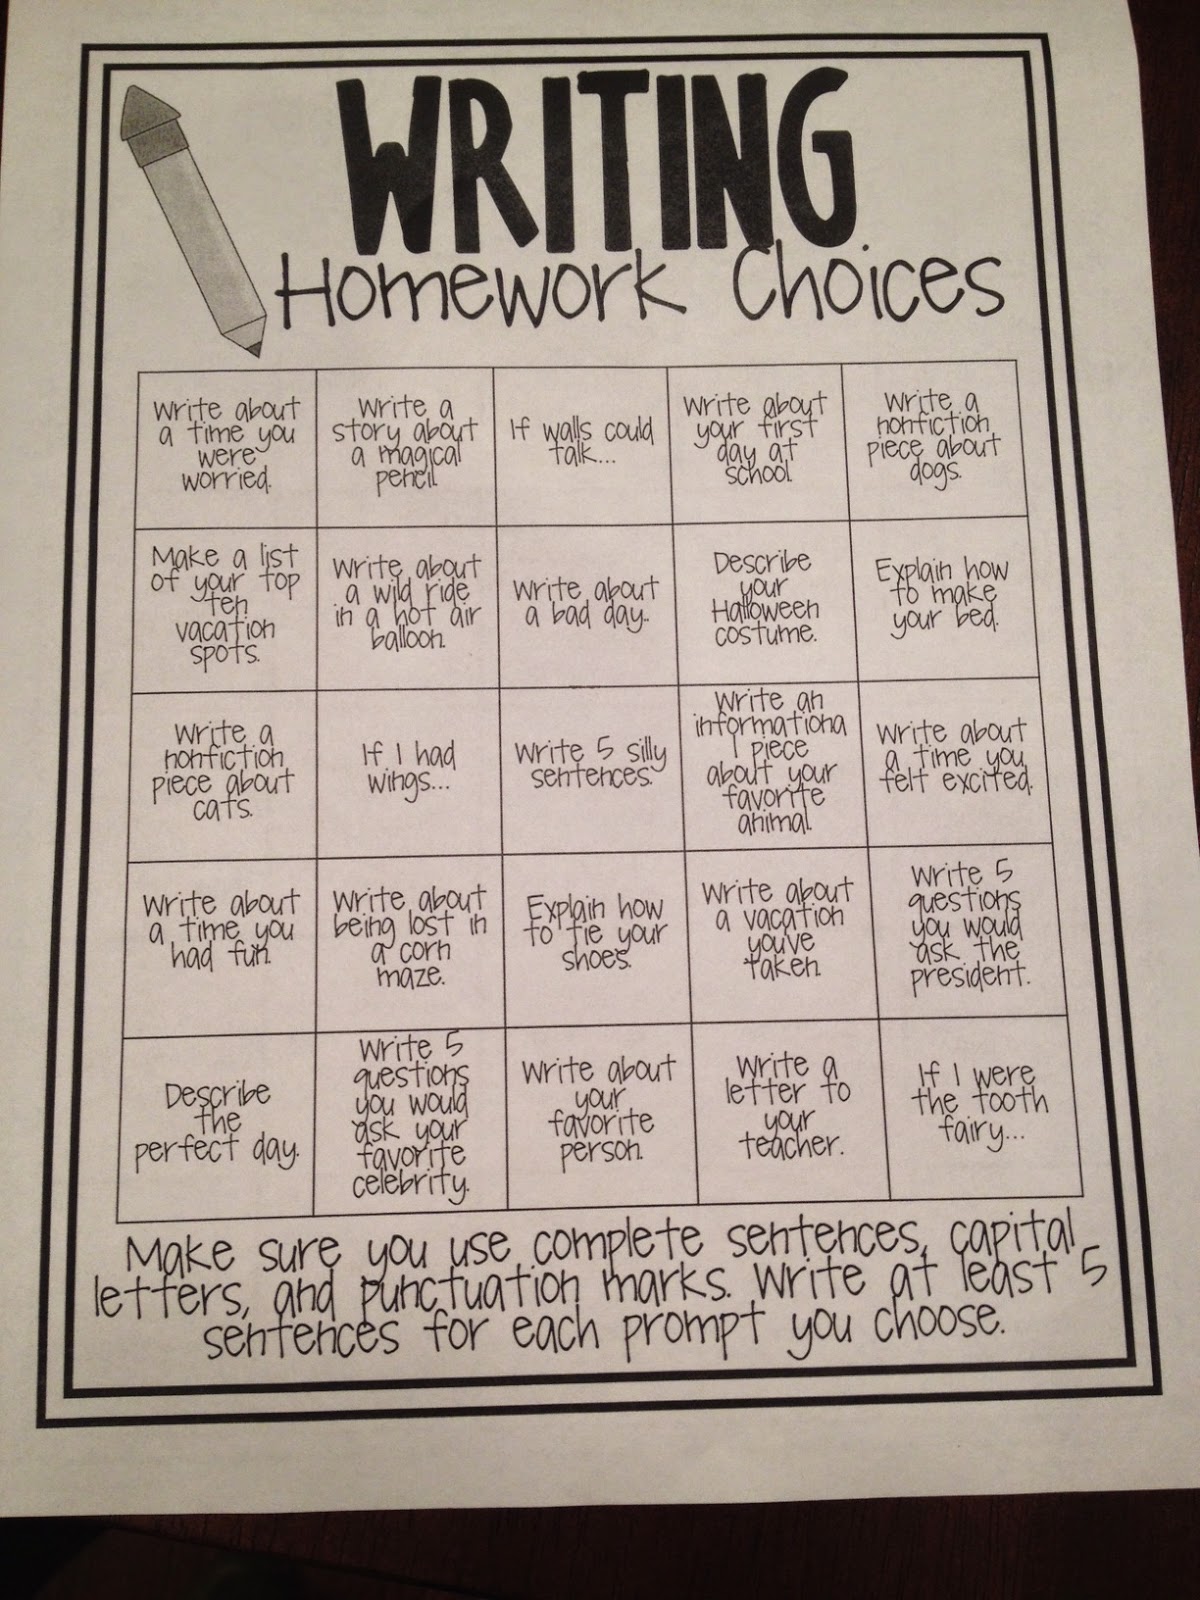 WRITING
Homework Choices
Write about
a time you
were
worried.
Write a
story about
a magical
pencil.
If walls could
talk...
Write about
your first
day at
school.
Write a
nonfiction
piece about
dogs.
Make a list
of your top
ten
vacation
spots.
Write about
a wild ride
in a hot air
balloon.
Write about
a bad day.
Describe
your
Halloween
costume.
Explain how
to make
your bed.
Write a
nonfiction
piece about
cats.
If I had
wings...
Write 5 silly
sentences.
Write an
informationa
l piece
about your
favorite
animal.
Write about
a time you
felt excited.
Write about
a time you
had fun.
Write about
being lost in
a corn
maze.
Explain how
to tie your
shoes.
Write about
a vacation
you've
taken.
Write 5
questions
you would
ask the
president.
Describe
the
perfect day.
Write 5
questions
you would
ask your
favorite
celebrity.
Write about
your
favorite
person.
Write a
letter to
your
teacher.
If I were
the tooth
fairy...
Make sure you use complete sentences, capital
letters, and punctuation marks. Write at least 5
sentences for each prompt you choose.